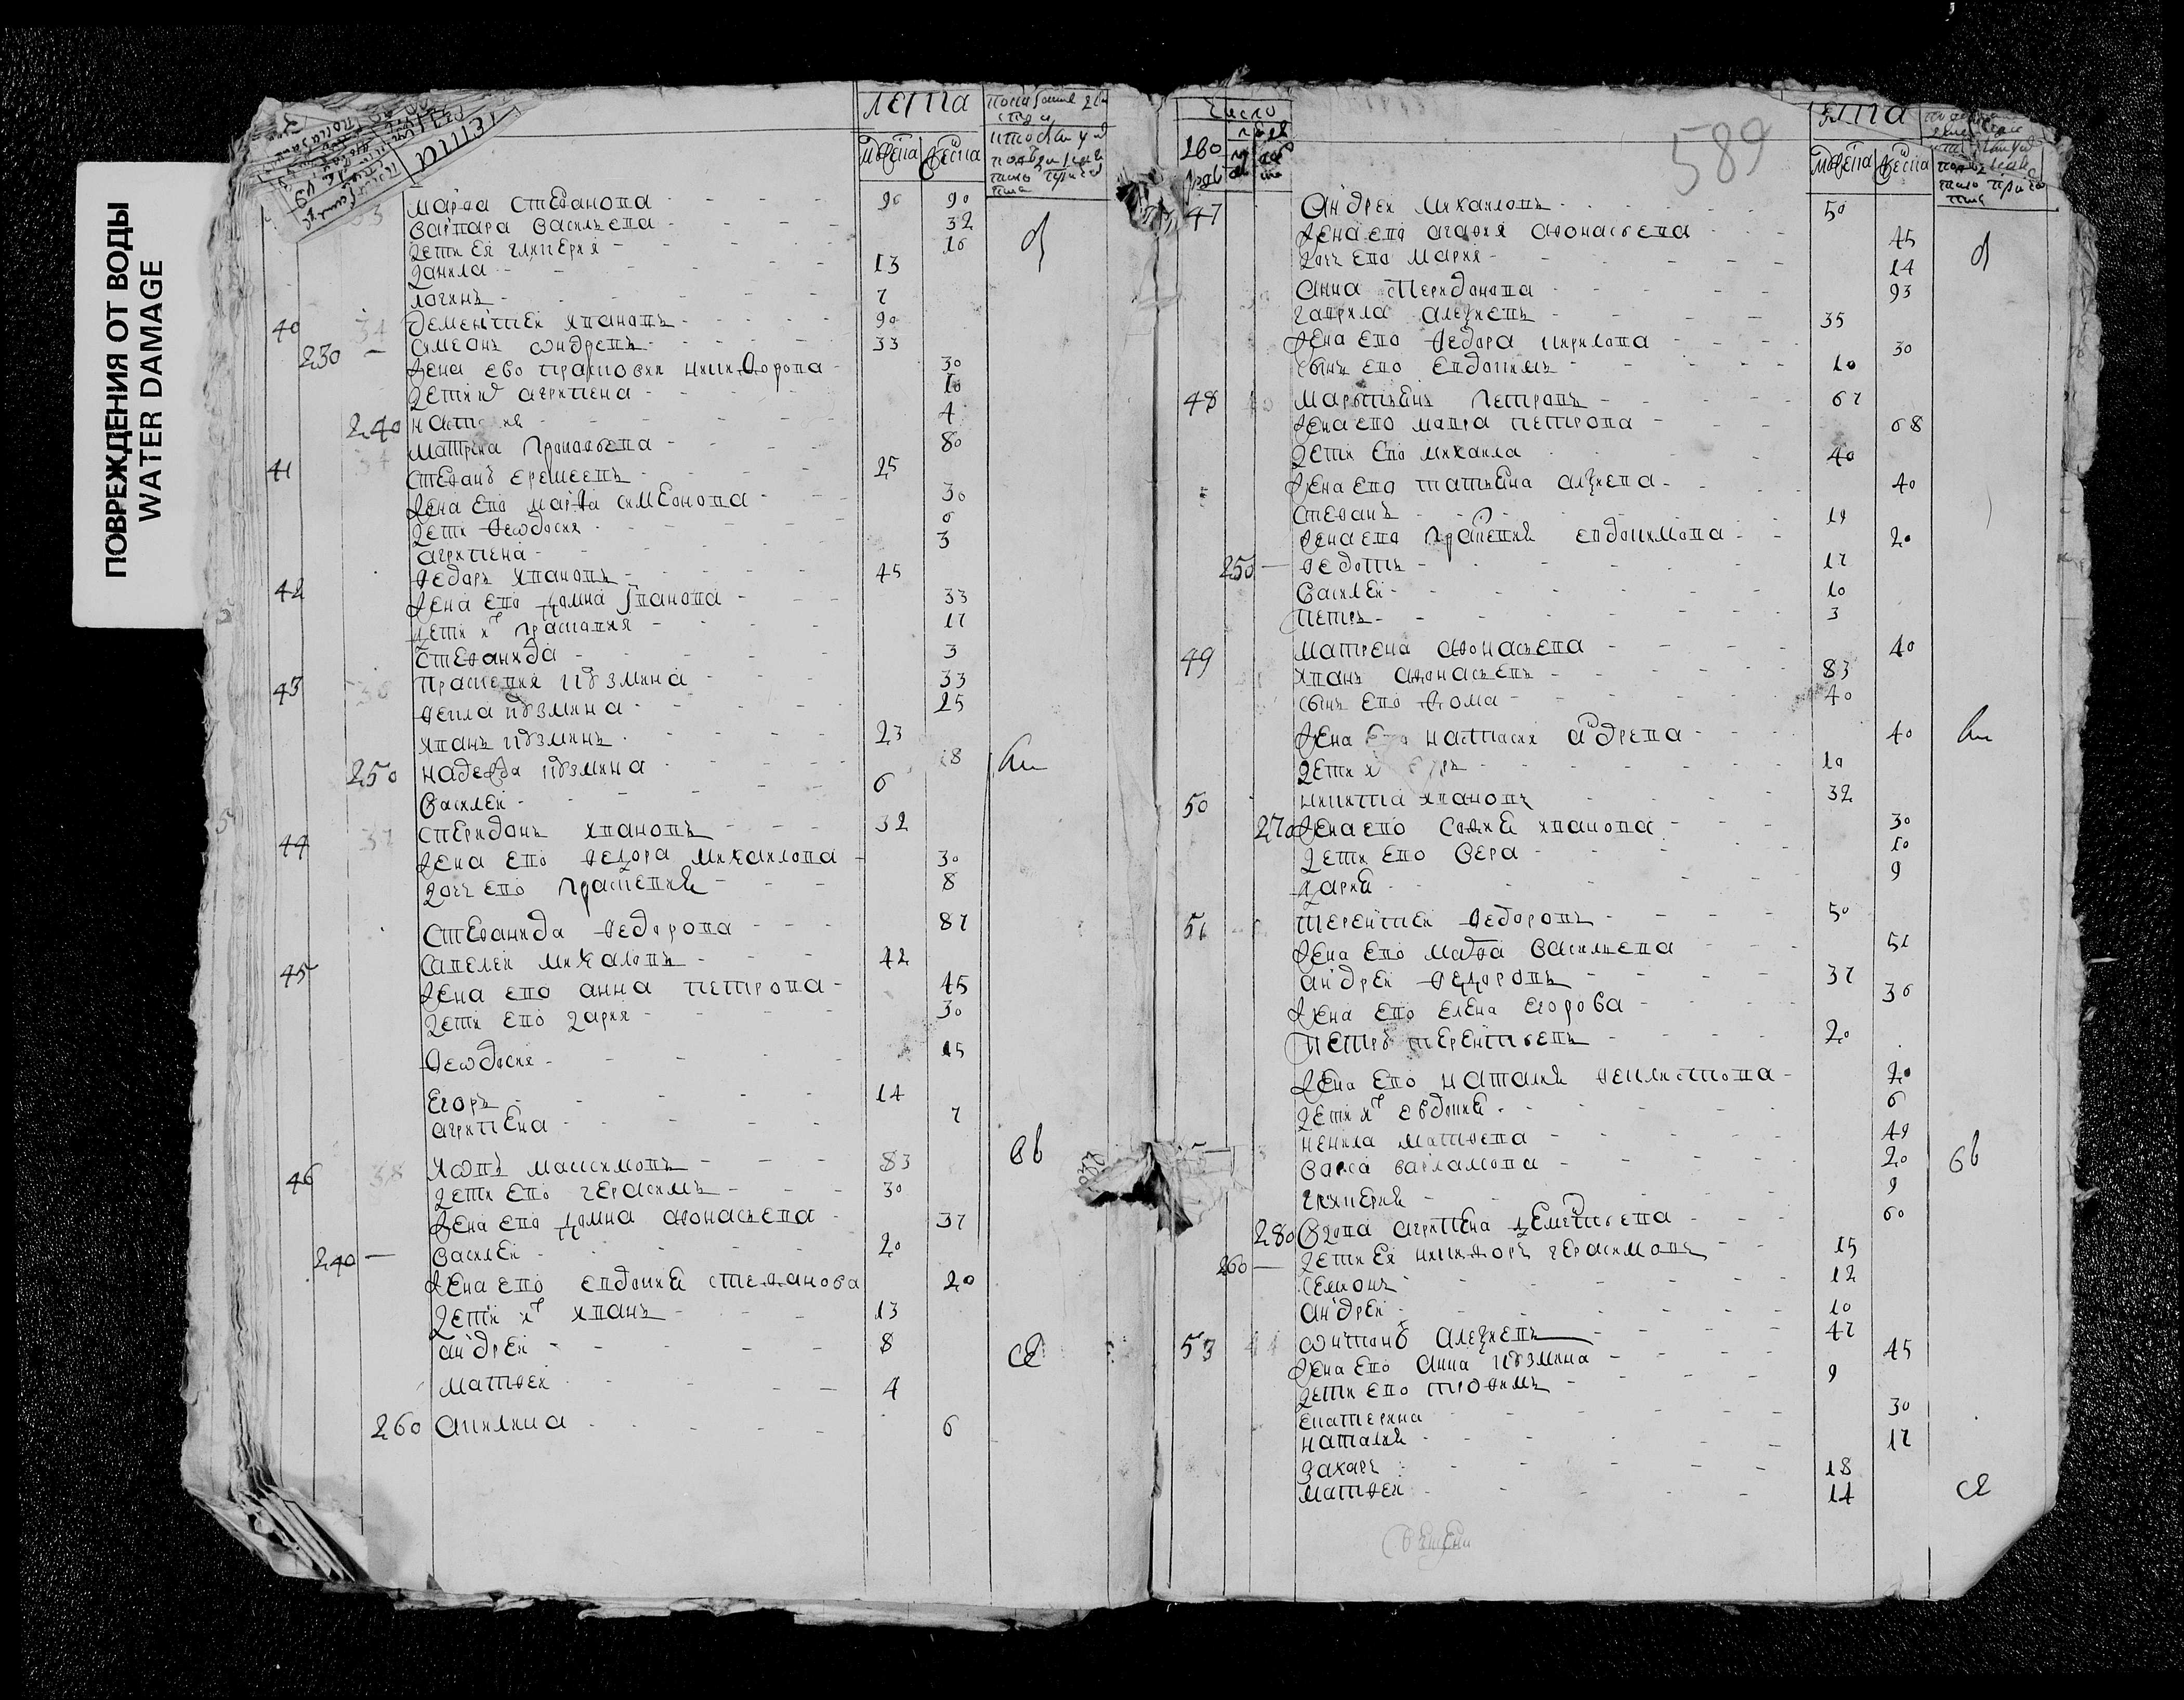 ПОВРЕЖДЕНИЯ ОТ ВОДЫ
WATER DAMAGE
лета
мужеска женска
марѳа стеѳанова 90
варвара васильева 32
дети ея гликерия 16
данила 13
логинъ 7
40 дементией иванов 90
230 симеонъ андревъ 33
жена ево прасковия никифорова 30
дети их агрипена 10
240 4
матрена 80
41 стеѳанъ еремеевъ 25
жена ево марѳа симеонова 30
дети ѳеѡдосия 6
агрипена 3
42 ѳедоръ ивановъ 45
жена ево домна иванова 33
дети их праскавия 17
стеѳанида 3
43 праскевия кузмина 33
ѳекла кузмина 25
иванъ кузминъ 23
250 надежда кузмина 18
василей 6
44 спиридонъ ивановъ 32
жена ево ѳедора михаилова 30
дочь ево праскевия 8
стеѳанида ѳедорова 87
45 савелей михаловъ 42
жена ево анна петрова 45
дети ево дария 30
ѳеѡдосия 15
егоръ 14
агрипена 7
46 иѡвъ максимовъ 83
дети ево герасимъ 30
жена ево домна аѳонасьева 37
240 василей 20
жена ево евдокия стеѳанова 20
дети их иванъ 13
андрей 8
матѳей 4
260 акилина 6
589
число
лета
мужеска женска
47 андрей михаиловъ 50
жена ево агаѳия аѳонасьева 45
дочь ево мария 14
анна спиридонова 93
гаврила алеѯиевъ 35
жена ево ѳедора кирилова 30
сынъ ево евдокимъ 10
48 мартынъ петровъ 67
жена ево мавра петрова 68
дети ево михаила 40
жена ево татьяна алеѯиева 40
стеѳанъ 19
жена ево праскевия евдокимова 20
250 ѳедотъ 17
василей 10
петръ 3
матрена аѳонасьева 40
49 иванъ аѳонасьевъ 83
сынъ ево ѳома 40
жена ево настасия андрева 40
дети их 10
50 никита ивановъ 32
270 жена ево соѳия иванова 30
дети ево вера 10
дария 9
51 терентией ѳедоровъ 50
жена ево марѳа васильева 51
андрей ѳедоровъ 37
жена ево елена егорова 36
петръ терентьевъ 20
жена ево наталия ѳеклистова 20
дети их евдокия 6
ненила матѳева 49
варсa варламова 20
гликерия 9
280 вдова агрипена дементьева 60
260 дети ея никиѳоръ герасимовъ 15
семионъ 12
андрей 10
53 антонъ алеѯиевъ 47
жена ево анна кузмина 45
дети ево троѳимъ 9
екатерина 30
наталия 17
захаръ 18
матѳей 14